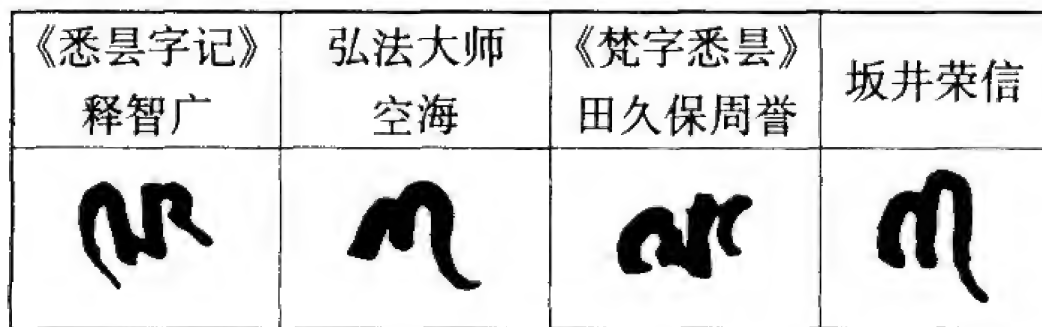 《悉昙字记》
释智广
弘法大师
空海
《梵字悉昙》
田久保周誉
坂井荣信